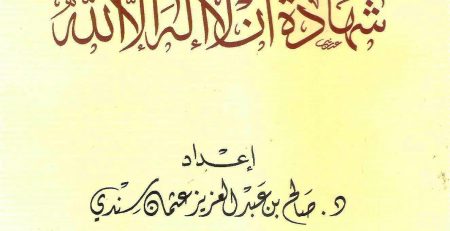 شهادة أن لا إله إلا الله
إعداد
د. صالح بن عبد العزيز عثمان سندي